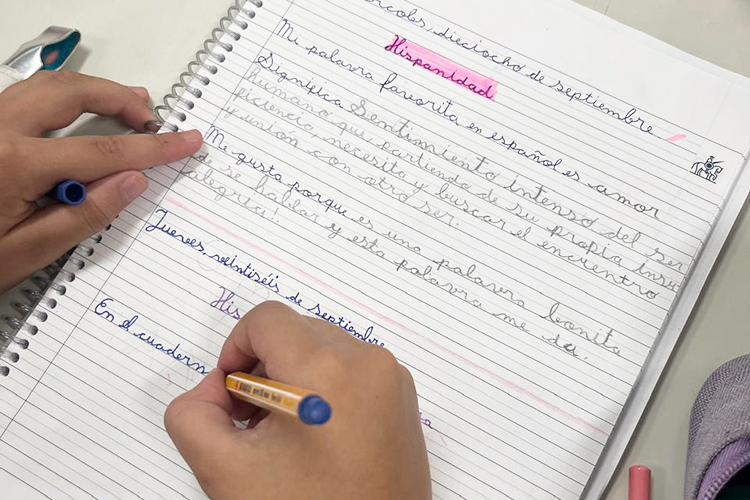 dieciocho de septiembre
Hispanidad
Mi palavra favorita en español es amor
Significa Sentimiento intenso del ser
humano que partiendo de su propia insu
ficiencia, necesita y buscar el encuentro
y unión con otro ser.
Me gusta porque es una palavra bonita
de se hablar y esta palavra me da
alegria!.
Jueves, veintiséis de septiembre
His
En el cuadern